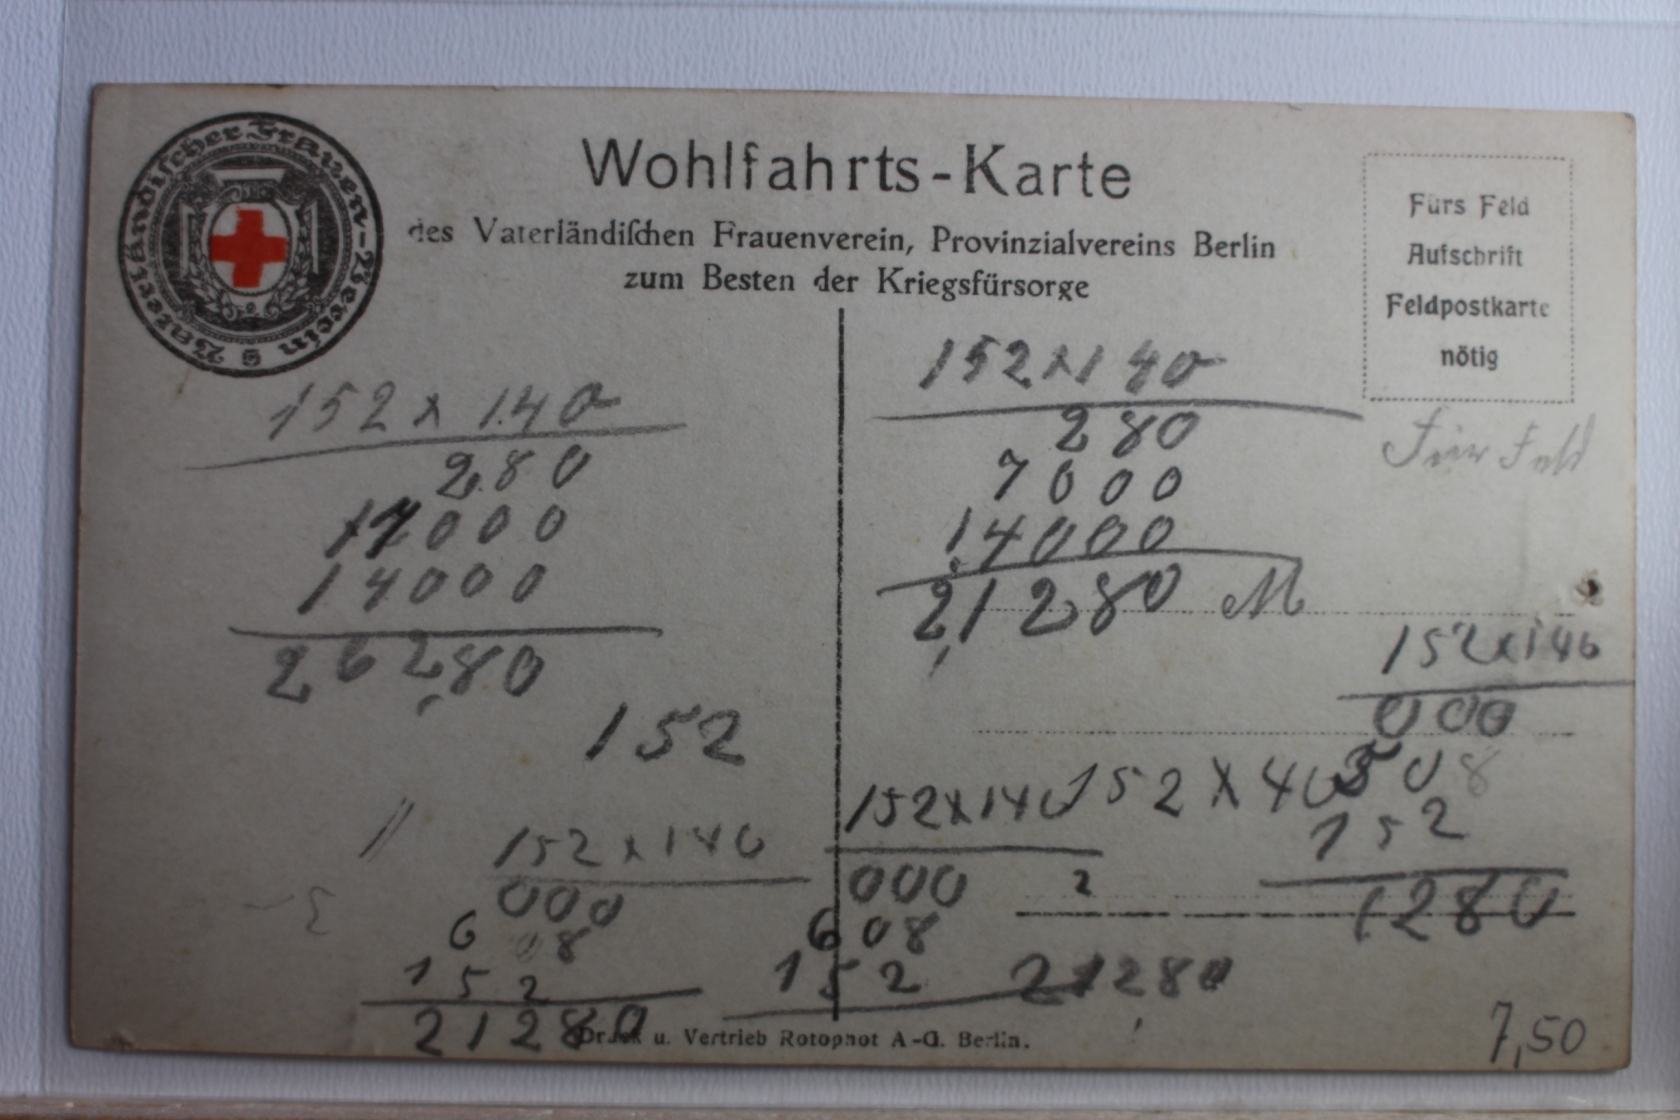 Vaterländischer Frauen-Verein
Wohlfahrts-Karte
des Vaterländiſchen Frauenverein, Provinzialvereins Berlin
zum Besten der Kriegsfürsorge
Fürs Feld
Aufschrift
Feldpostkarte
nötig
152 x 140
280
17000
14000
26280
152
152 x 140
280
7000
14000
21280 M
Für Feld
152 x 140
000
608
152
21280
152 x 140
000
608
152
21280
152 X 40
2
152 x 140
000
508
152
1280
Druck u. Vertrieb Rotophot A.-G. Berlin.
7,50